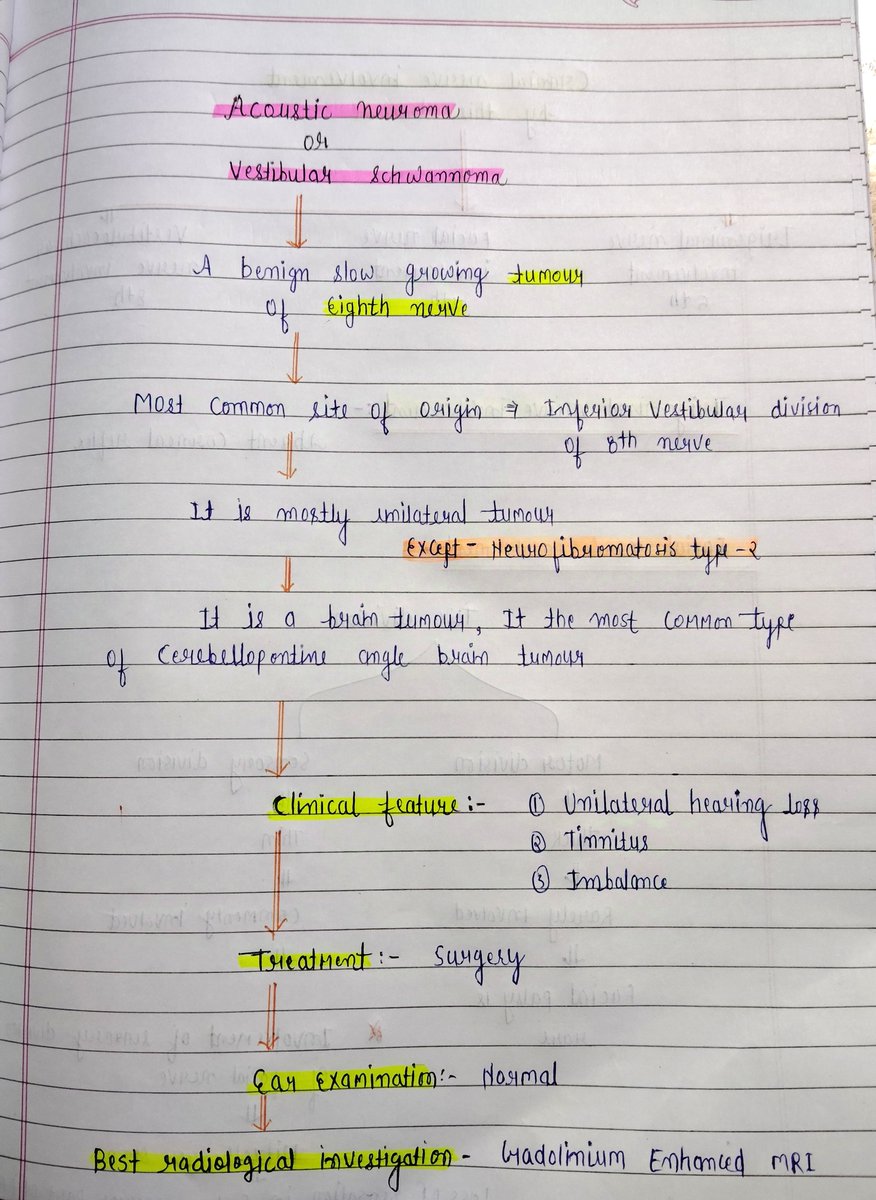 Acoustic neuroma
or
Vestibular schwannoma
A benign slow growing tumour
of Eighth nerve
Most common site of origin ⇒ Inferior Vestibular division
of 8th nerve
It is mostly unilateral tumour
Except - Neurofibromatosis type-2
It is a brain tumour, It the most common type
of Cerebellopontine angle brain tumour
Clinical feature :- ① Unilateral hearing loss
② Tinnitus
③ Imbalance
Treatment :- Surgery
Ear Examination :- Normal
Best radiological investigation - Gadolinium Enhanced MRI